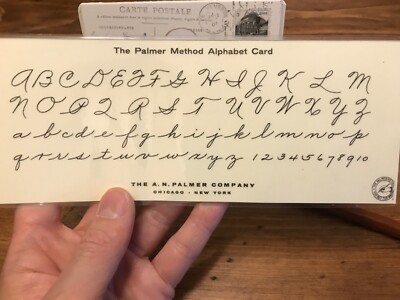 CARTE POSTALE
The Palmer Method Alphabet Card
A B C D E F G H I J K L M
N O P Q R S T U V W X Y Z
a b c d e f g h i j k l m n o p
q r r s t u v w x y z 1 2 3 4 5 6 7 8 9 10
THE A. N. PALMER COMPANY
CHICAGO - NEW YORK